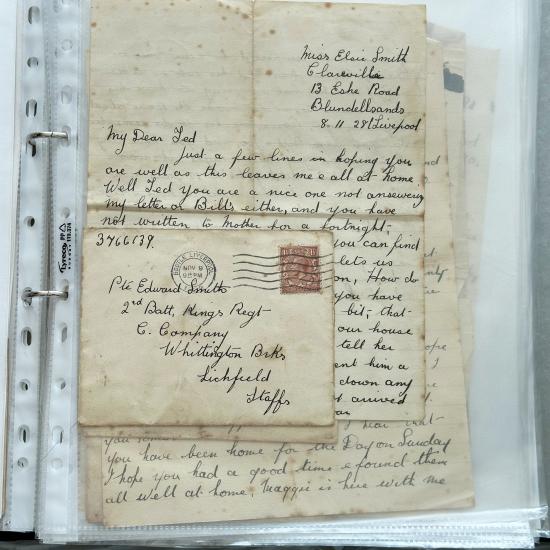 Miss Elsie Smith
Clareville
13 Eshe Road
Blundellsands
8.11.28 Liverpool
My Dear Ted
Just a few lines in hoping you
are well as this leaves me & all at home
Well Ted you are a nice one not answering
my letter or Bill's either, and you have
not written to Mother for a fortnight,
you can find
lets us
on, How do
you have
bit, that
our house
tell her
ent him a
down any
t arrived
3766139.
NOV 9
Pte Edward Smith
2nd Batt, Kings Regt
C. Company
Whittington Brks
Lichfield
Staffs
you have been home for the Day on Sunday
I hope you had a good time & found them
all well at home, Maggie is here with me
Tyreco